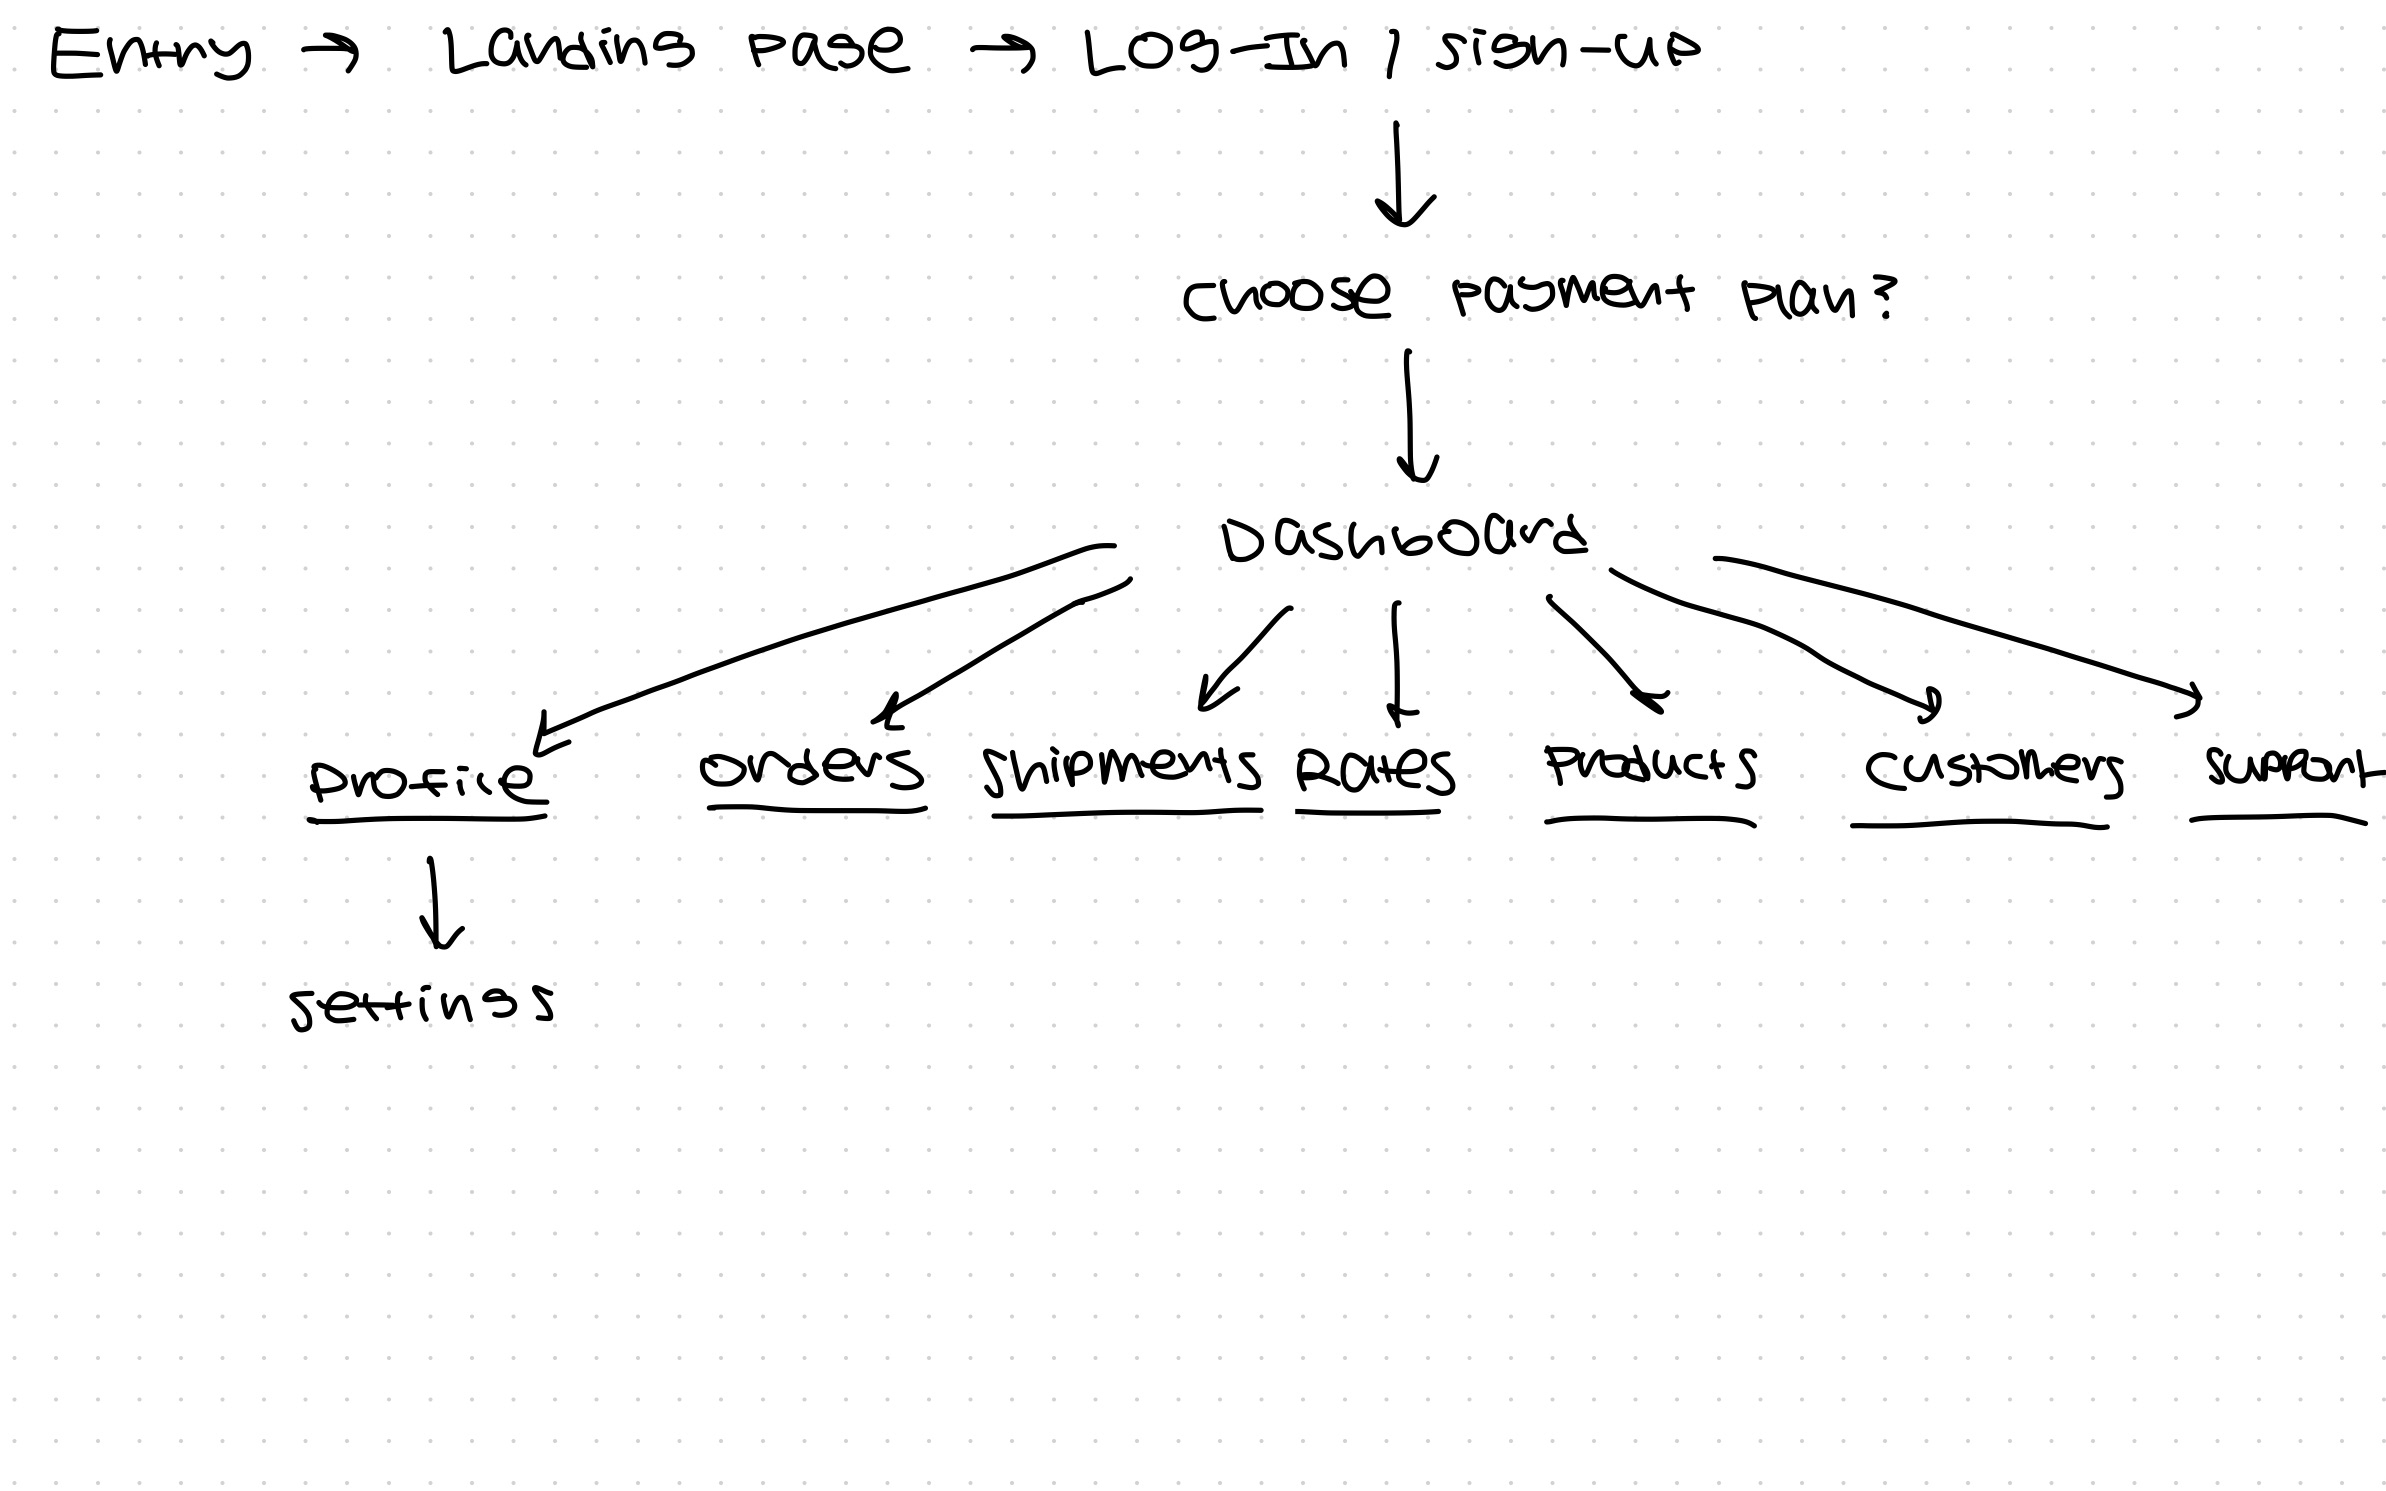 Entry → Landing Page → Log-In / sign-up
choose payment plan?
Dashboard
Profile orders Shipments Rates Products customers support
settings